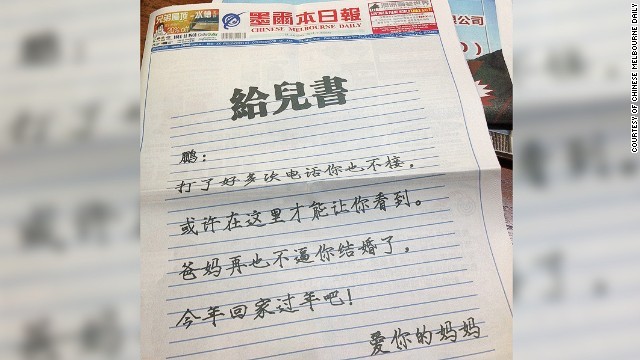 墨爾本日報
CHINESE MELBOURNE DAILY
給兒書
鹏：
打了好多次电话你也不接，
或许在这里才能让你看到。
爸妈再也不逼你结婚了，
今年回家过年吧！
爱你的妈妈
限公司
COURTESY OF CHINESE MELBOURNE DAILY